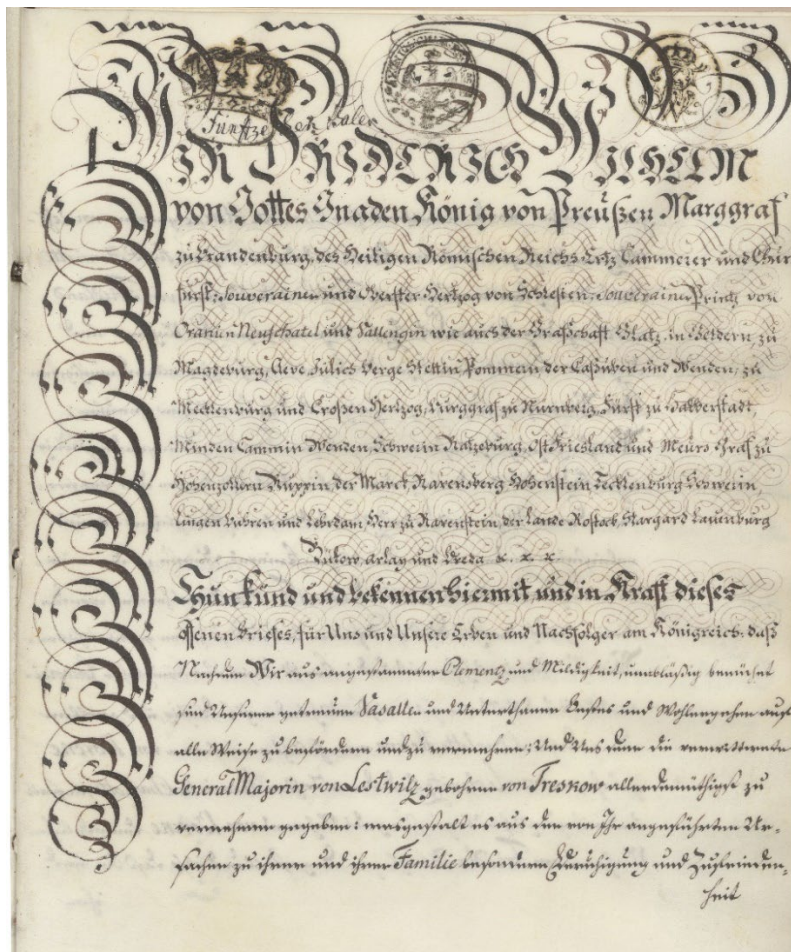 Fünfzehen Thaler
WIR FRIDERICH WILHELM
von Gottes Gnaden König von Preüßen Marggraf
zu Brandenburg, des Heiligen Römischen Reichs Ertz Cammerer und Chur
fürst, Souverainer und Oberster Hertzog von Schlesien, Souverainer Printz von
Oranien Neufchatel und Vallengin wie auch der Graffschaft Glatz, in Geldern, zu
Magdeburg, Cleve Jülich Berge Stettin Pommern der Caßuben und Wenden, zu
Mecklenburg und Croßen Hertzog, Burggraf zu Nürnberg, Fürst zu Halberstadt,
Minden Cammin Wenden Schwerin Ratzeburg, Ost Friesland und Meurs Graf zu
Hohenzollern Ruppin, der Marck, Ravensberg Hohenstein Tecklenburg Schwerin,
Lingen Bühren und Lehrdam Herr zu Ravenstein, der Lande Rostock, Stargard Lauenburg
Bütow Arlay und Breda x. x. x
Thun kund und bekennen hiermit und in Kraft dieses
offenen Briefes, für Uns und Unsere Erben und Nachfolger am Königreich, daß
Nachdem Wir aus angestammter Clementz und Mildigkeit, unabläßig bemühet
sind Unserer getreuen Vasallen und Unterthanen Bestes und Wohlergehen auf
alle Weise zu befördern und zu vermehren; Und Uns dann die verwittwete
General Majorin von Lestwitz gebohrne von Treskow allerdemüthigst zu
vernehmen gegeben: wasgestalt es aus den von Ihr angeführten Ur=
sachen zu ihrer und ihrer Familie besondern Beruhigung und Zufrieden=
heit